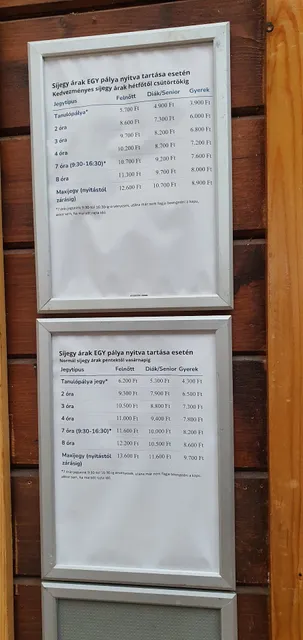 Síjegy árak EGY pálya nyitva tartása esetén
Kedvezményes síjegy árak hétfőtől csütörtökig
Jegytípus Felnőtt Diák/Senior Gyerek
Tanulópálya* 5.700 Ft 4.900 Ft 3.900 Ft
2 óra 8.600 Ft 7.300 Ft 6.000 Ft
3 óra 9.700 Ft 8.200 Ft 6.800 Ft
4 óra 10.200 Ft 8.700 Ft 7.200 Ft
7 óra (9:30-16:30)* 10.700 Ft 9.200 Ft 7.600 Ft
8 óra 11.300 Ft 9.700 Ft 8.000 Ft
Maxijegy (nyitástól zárásig) 12.600 Ft 10.700 Ft 8.900 Ft
Síjegy árak EGY pálya nyitva tartása esetén
Normál síjegy árak péntektől vasárnapig
Jegytípus Felnőtt Diák/Senior Gyerek
Tanulópálya jegy* 6.200 Ft 5.300 Ft 4.300 Ft
2 óra 9.300 Ft 7.900 Ft 6.500 Ft
3 óra 10.500 Ft 8.800 Ft 7.300 Ft
4 óra 11.000 Ft 9.400 Ft 7.800 Ft
7 óra (9:30-16:30)* 11.600 Ft 10.000 Ft 8.200 Ft
8 óra 12.200 Ft 10.500 Ft 8.600 Ft
Maxijegy (nyitástól zárásig) 13.600 Ft 11.600 Ft 9.700 Ft